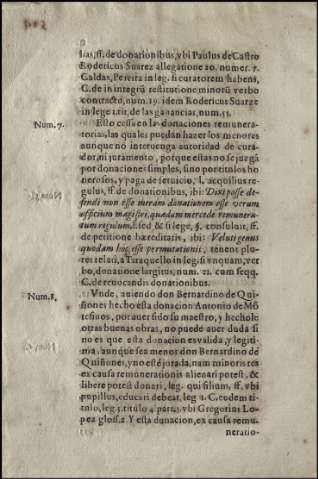 lias, ff. de donationibus, vbi Paulus de Castro
Rodericus Suarez allegatione 20. numer. 7.
Caldas, Pereira in leg. si curatorem habens,
C. de in integrū restitutione minorū verbo
contracto, num. 19. idem Rodericus Suarez
in lege 1. tit. de las ganancias, num. 55.
Num. 7.
Esto cessa en las donaciones remunera-
torias, las quales puedan hazer los menores
aunque no interuenga autoridad de cura-
dor, ni juramento, porque estas no se juzgā
por donaciones simples, sino por titulos ho
nerosos, y paga de seruicio, l. acquilius re-
gulus, ff. de donationibus, ibi: Dixi posse de-
fendi non esse meram donationem esse verum
officium magistri, quadam mercede remunera-
tum regulum, l. sed & si lege, §. consuluit, ff.
de petitione hæreditatis, ibi: Velut genus
quoddam hoc esse permutationis, tenent plu-
res relati, a Tiraquello in leg. si vnquam, ver
bo, donatione largitus, num. 21. cum seqq.
C. de reuocandis donationibus.
Num. 8.
Vnde, auiendo don Bernardino de Qui-
ñones hecho esta donacion Antonio de Mō
tesinos, por auer sido su maestro, y hechole
otras buenas obras, no puede auer duda si
no es que esta donacion es valida, y legiti-
ma: aunque sea menor don Bernardino de
Quiñones, y no esté jurada, nam minor is res
ex causa remunerationis alienari potest, &
libere potest donari, leg. qui filium, ff. vbi
pupillus, educari debear, leg 2. C. eodem ti-
tulo, leg 3. titulo 4. part. 5. vbi Gregorius Lo-
pea gloss. 2. Y esta donacion, ex causa remu-
neratio-